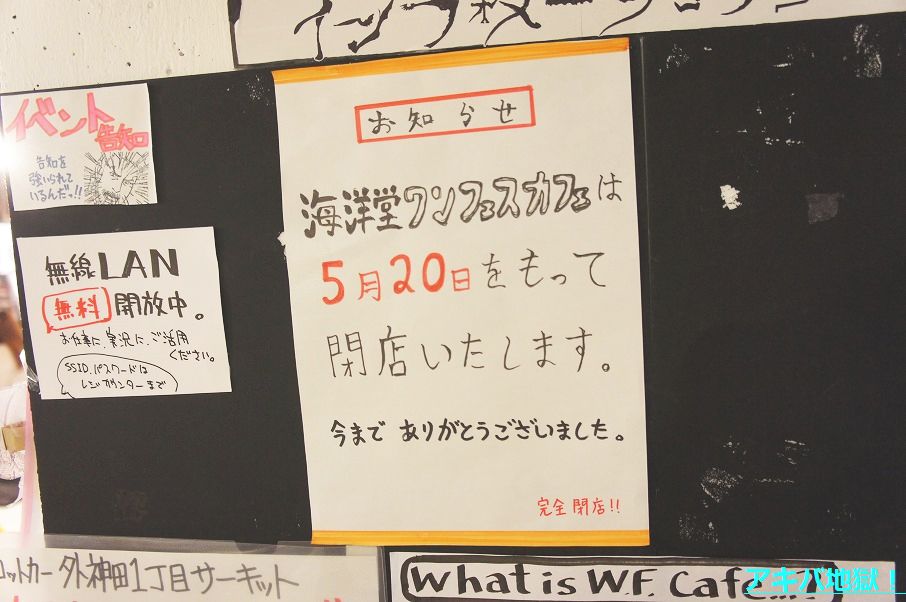 インフォメーション
イベント
告知
告知を
強いられて
いるんだっ!!
お知らせ
海洋堂ワンフェスカフェは
5月20日をもって
閉店いたします。
今まで ありがとうございました。
完全閉店!!
無線LAN
無料開放中。
お仕事に、実況に、ご活用
ください。
SSID、パスワードは
レジカウンターまで
ロットカー 外神田1丁目サーキット
What is W.F. Cafe...
アキバ地獄!